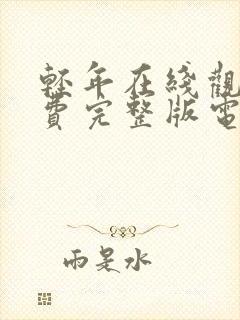 輕年在綫觀
費完整版電
雨是水